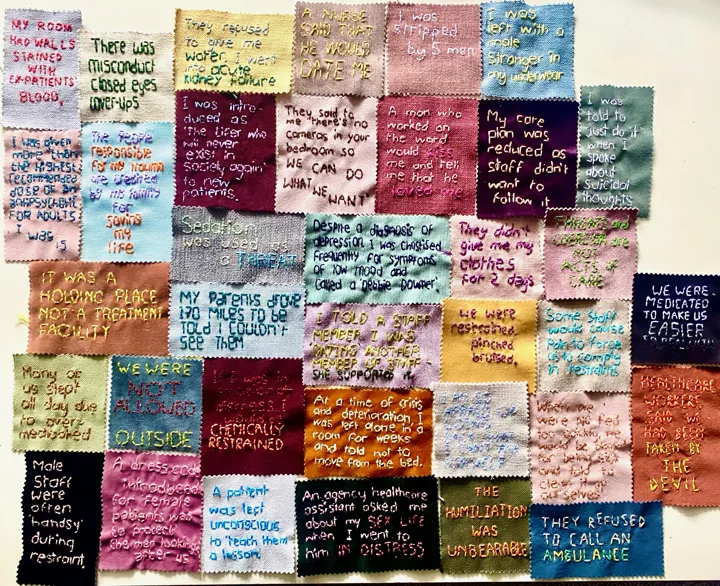 MY ROOM
HAD WALLS
STAINED
WITH
EX-PATIENTS'
BLOOD,
There was
misconduct
closed eyes
cover-ups
They refused
to give me
water. I went
into acute
kidney failure
A NURSE
SAID THAT
HE WOULD
DATE ME
I was
stripped
by 5 men
I was
left with a
male
stranger in
my underwear
I was given
more than
the highest
recommended
dose of an
antipsychotic
FOR ADULTS
I WAS
15
The people
responsible
for my trauma
are credited
by my family
for
saving
my
life
I was intro-
duced as
'the lifer who
will never
exist in
society again'
to new
patients.
They said to
me "there's no
cameras in your
bedroom so
WE CAN DO
WHAT WE WANT"
A man who
worked on
the ward
would
me and tell
me that he
loved me
My care
plan was
reduced as
staff didn't
want to
follow it
I was
told to
'just do it'
when I
spoke
about
suicidal
thoughts
Sedation
was used as
a THREAT
Despite a diagnosis of
depression I was chastised
frequently for symptoms
of low mood and
called a 'debbie Downer'.
They didn't
give me my
clothes
for 2 days
THREATS and
COERCION are
NOT
ACTS OF
CARE
IT WAS A
HOLDING PLACE
NOT A TREATMENT
FACILITY
MY PARENTS drove
170 MILES to be
told I couldn't
see them
I TOLD A STAFF
MEMBER I WAS
DATING ANOTHER
MEMBER OF STAFF -
SHE SUPPORTED IT.
We were
restrained,
pinched
bruised.
Some staff
would cause
pain to force
us to comply
in restraints
WE WERE
MEDICATED
TO MAKE US
EASIER
Many of
us slept
all day due
to over-
medicated
WE WERE
NOT
ALLOWED
OUTSIDE
I
CHEMICALLY
RESTRAINED
At a time of crisis
and deterioration, I
was left alone in a
room for weeks
and told not to
move from the bed.
HEALTHCARE
WORKERS
SAID WE
HAD BEEN
TAKEN BY
THE
DEVIL
Male
Staff
were
often
'handsy'
during
restraint
A dress-code
introduced
for female
patients was
to protect
the men looking
after us
A patient
was left
unconscious
to 'teach them
a lesson.'
An agency healthcare
assistant asked me
about my SEX LIFE
when I went to
him IN DISTRESS
THE
HUMILIATION
WAS
UNBEARABLE
THEY REFUSED
TO CALL AN
AMBULANCE